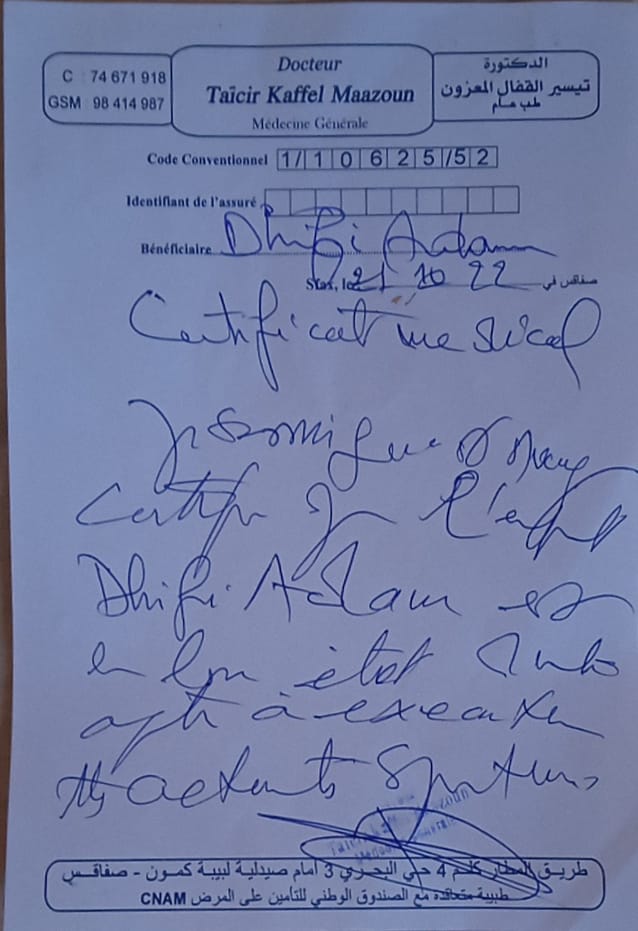 C : 74 671 918
GSM : 98 414 987
Docteur
Taïcir Kaffel Maazoun
Médecine Générale
الدكتورة
تيسير القفال المعزون
طب عام
Code Conventionnel 1/10625/52
Identifiant de l'assuré
Bénéficiaire Dhifi Adam
Sfax, le 21 10 22 صفاقس في
Certificat medical
Je soussigné
certifie que l'enfant
Dhifi Adam est
en bon état
apte à exercer
activités sportives
Maazoun
طريق المطار كلم 4 حي البحري 3 أمام صيدلية لبيبة كمون - صفاقس
طبيبة متعاقدة مع الصندوق الوطني للتأمين على المرض CNAM